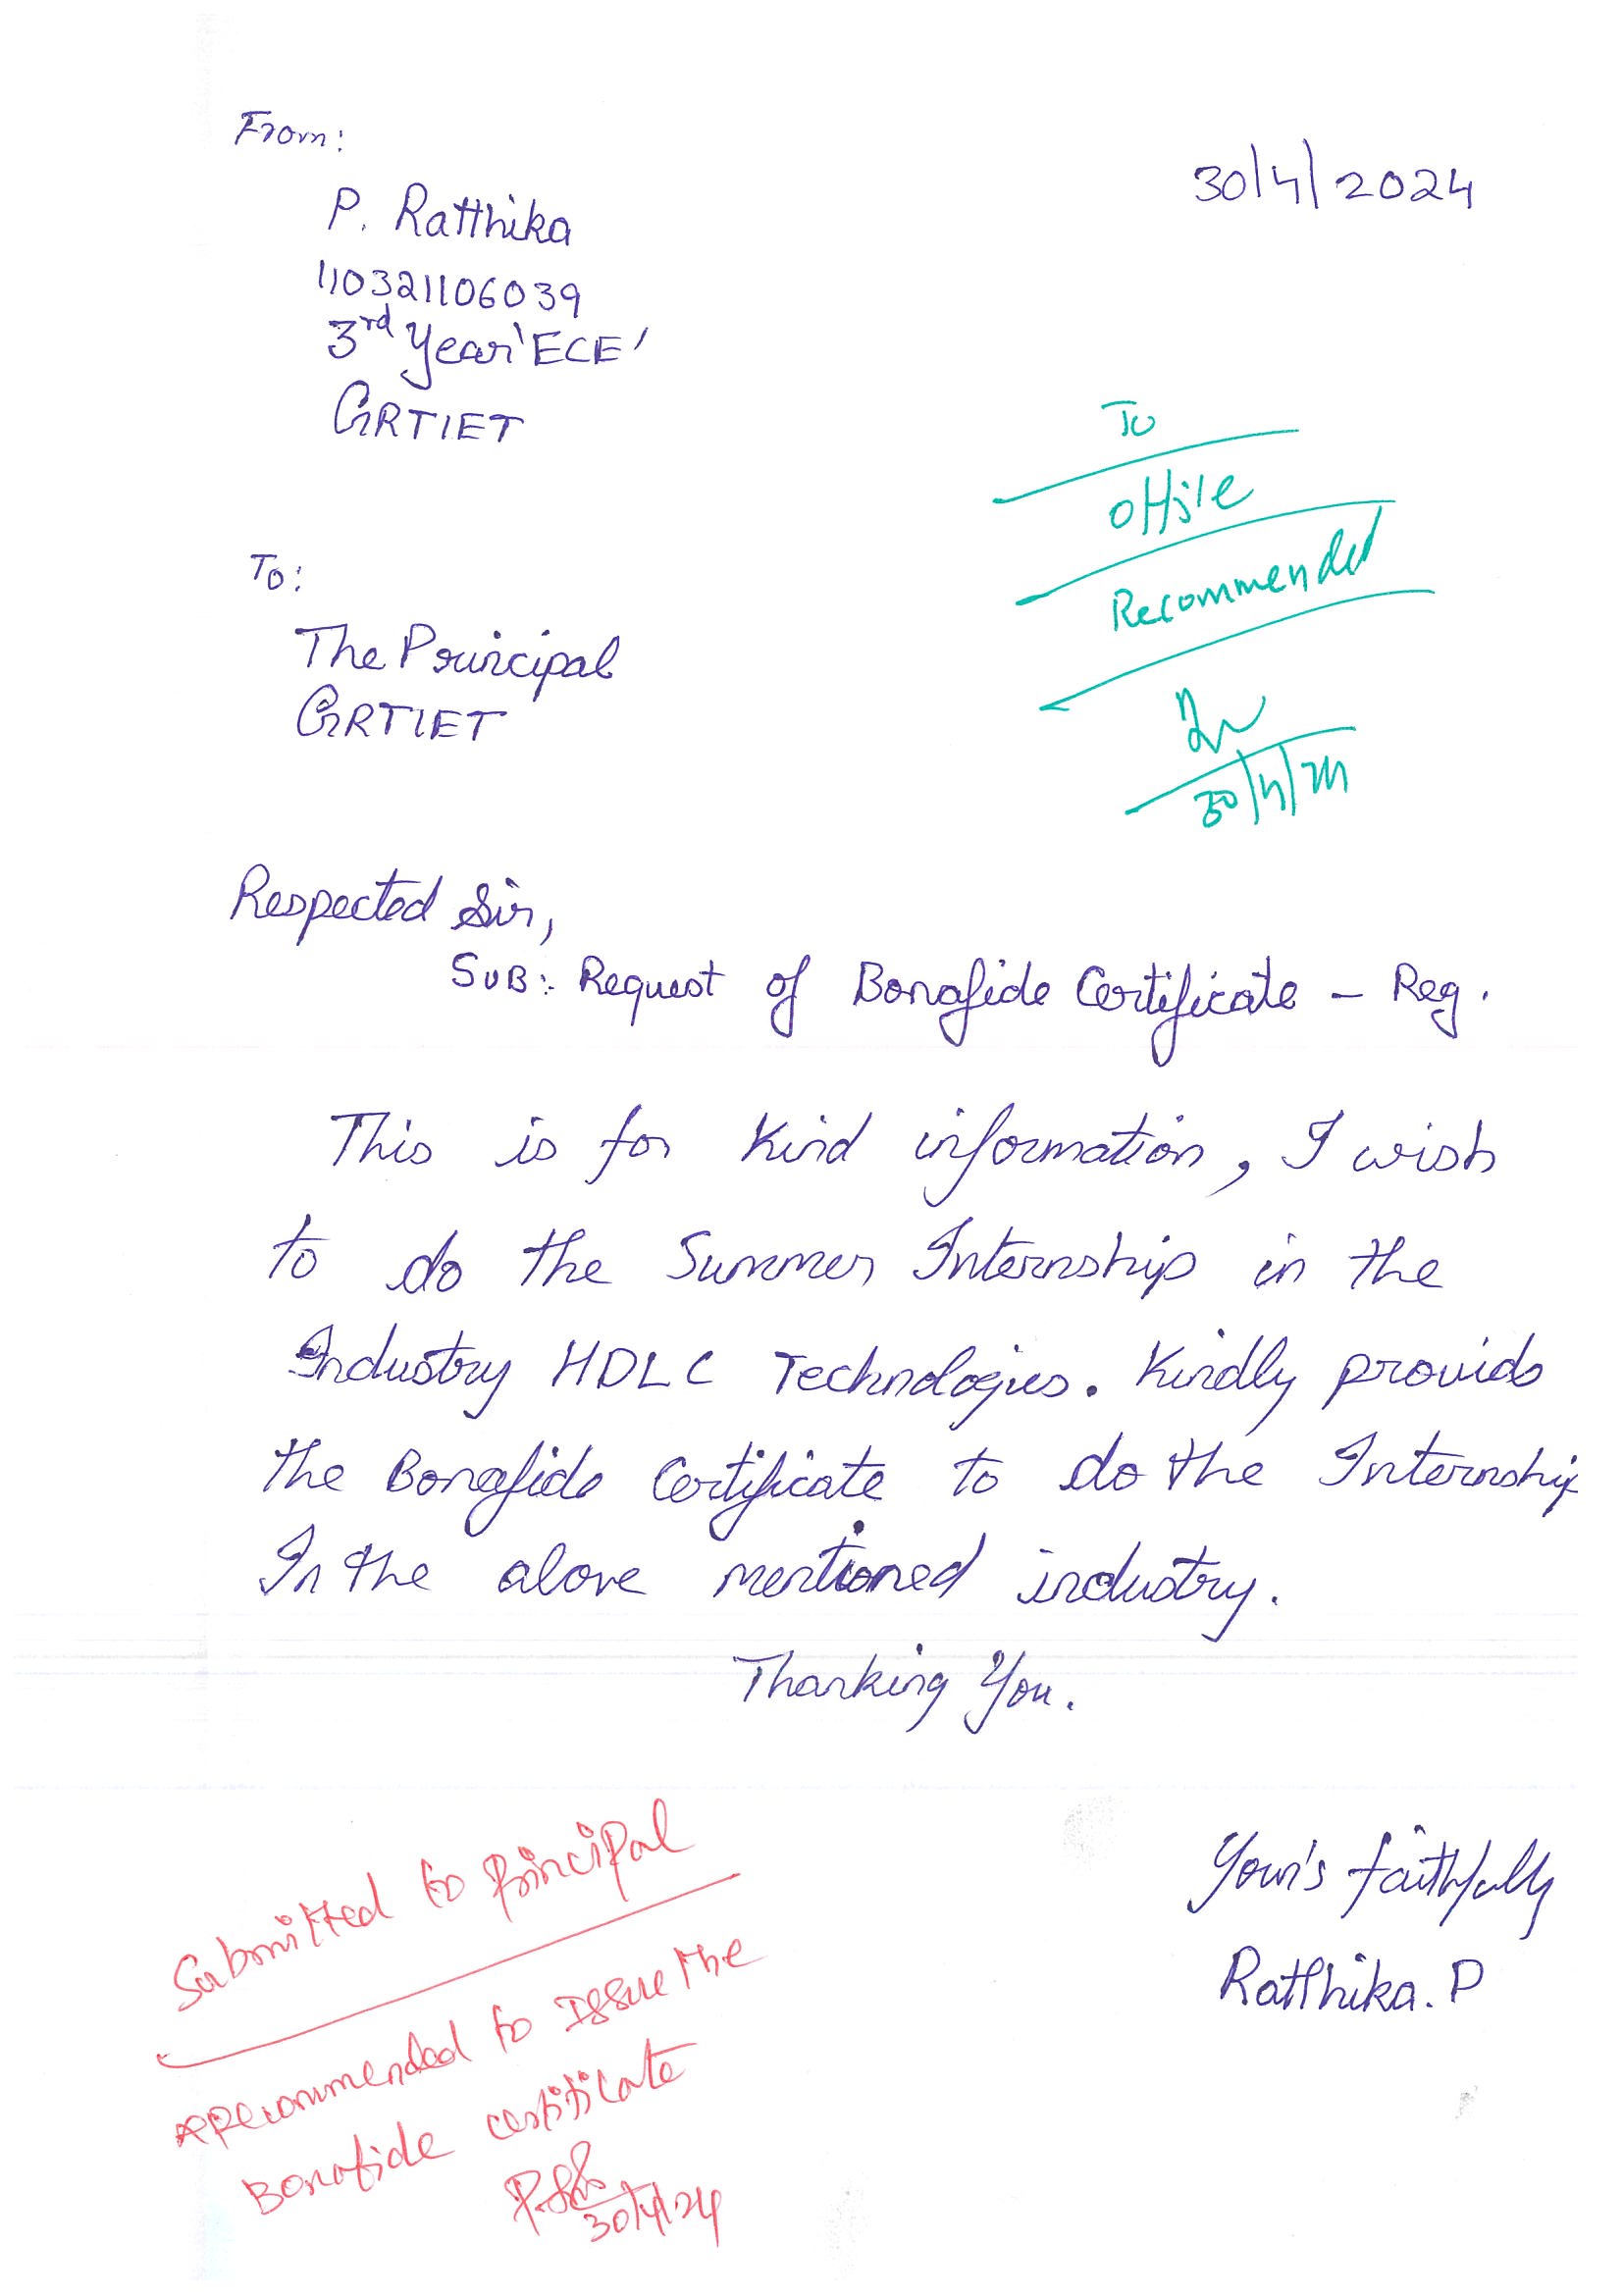 From:
30/4/2024
P. Ratthika
110321106039
3rd Year 'ECE'
GRTIET
To
Office
Recommended
30/4/24
To:
The Principal
GRTIET
Respected Sir,
SUB:- Request of Bonafide Certificate - Reg.
This is for kind information, I wish
to do the Summer Internship in the
Industry HDLC Technologies. Kindly provide
the Bonafide Certificate to do the Internship
In the above mentioned industry.
Thanking You.
Your's faithfully
Ratthika. P
Submitted to principal
recommended to Issue the
Bonafide certificate
30/4/24